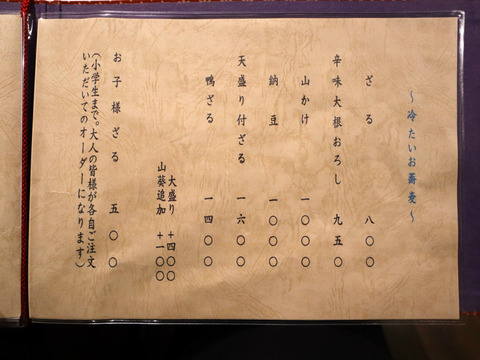 ～冷たいお蕎麦～
ざる 八〇〇
辛味大根おろし 九五〇
山かけ 一〇〇〇
納豆 一〇〇〇
天盛り付ざる 一六〇〇
鴨ざる 一四〇〇
大盛り +四〇〇
山葵追加 +一〇〇
お子様ざる 五〇〇
(小学生まで。大人の皆様が各自ご注文
いただいてのオーダーになります)